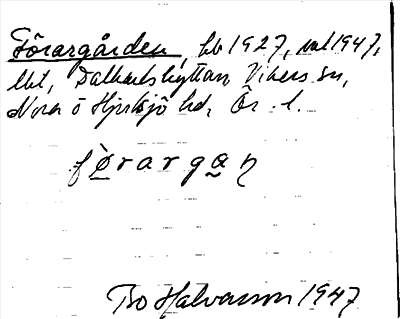 Förargården, hb 1927, ml 1947,
lht, Dalkarlshyttan, Vikers sn,
Nora o Hjulsjö hd, Ör. l.
förargan
Bo Halvarsson 1947